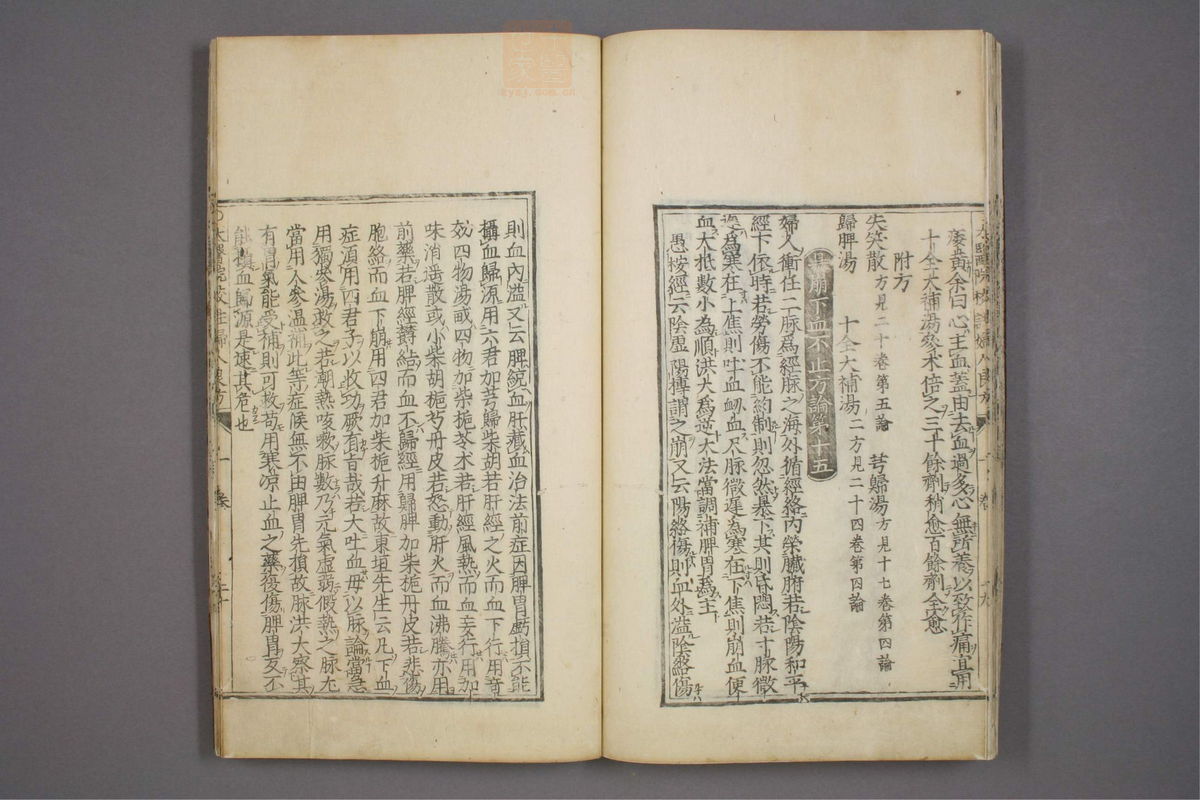 痿黃余曰心主血蓋由去血過多心無所養以致作痛宜用
十全大補湯參朮倍之三十餘劑稍愈百餘劑全愈
附方
失笑散方見二十卷第五論 芎歸湯方見十七卷第四論
歸脾湯 十全大補湯二方見二十四卷第四論
崩下血不止方論第十五
婦人衝任二脉為經脉之海外循經絡内榮臟腑若陰陽和平
經下依時若勞傷不能約制則忽然暴下甚則昏悶若寸脉微
遲為寒在上焦則吐血衂血尺脉微遲為寒在下焦則崩血便
血大抵數小為順洪大為逆大法當調補脾胃為主
愚按經云陰虛陽搏謂之崩又云陽絡傷則血外溢陰絡傷
則血内溢又云脾統血肝藏血治法前症因脾胃虧損不能
攝血歸源用六君加芎歸柴胡若肝經之火而血下行用奇
效四物湯或四物加柴梔苓朮若肝經風熱而血妄行用加
味消遥散或小柴胡梔芍丹皮若怒動肝火而血沸騰亦用
前藥若脾經鬱結而血不歸經用歸脾加柴梔丹皮若悲傷
胞絡而血下崩用四君加柴梔升麻故東垣先生云凡下血
症須用四君子以收功厥有旨哉若大吐血毋以脉論當急
用獨參湯救之若潮熱咳嗽脉數乃元氣虛弱假熱之脉尤
當用人參温補此等症候無不由脾胃先損故脉洪大察其
有胃氣能受補則可救苟用寒凉止血之藥復傷脾胃反不
能攝血歸源是速其危也